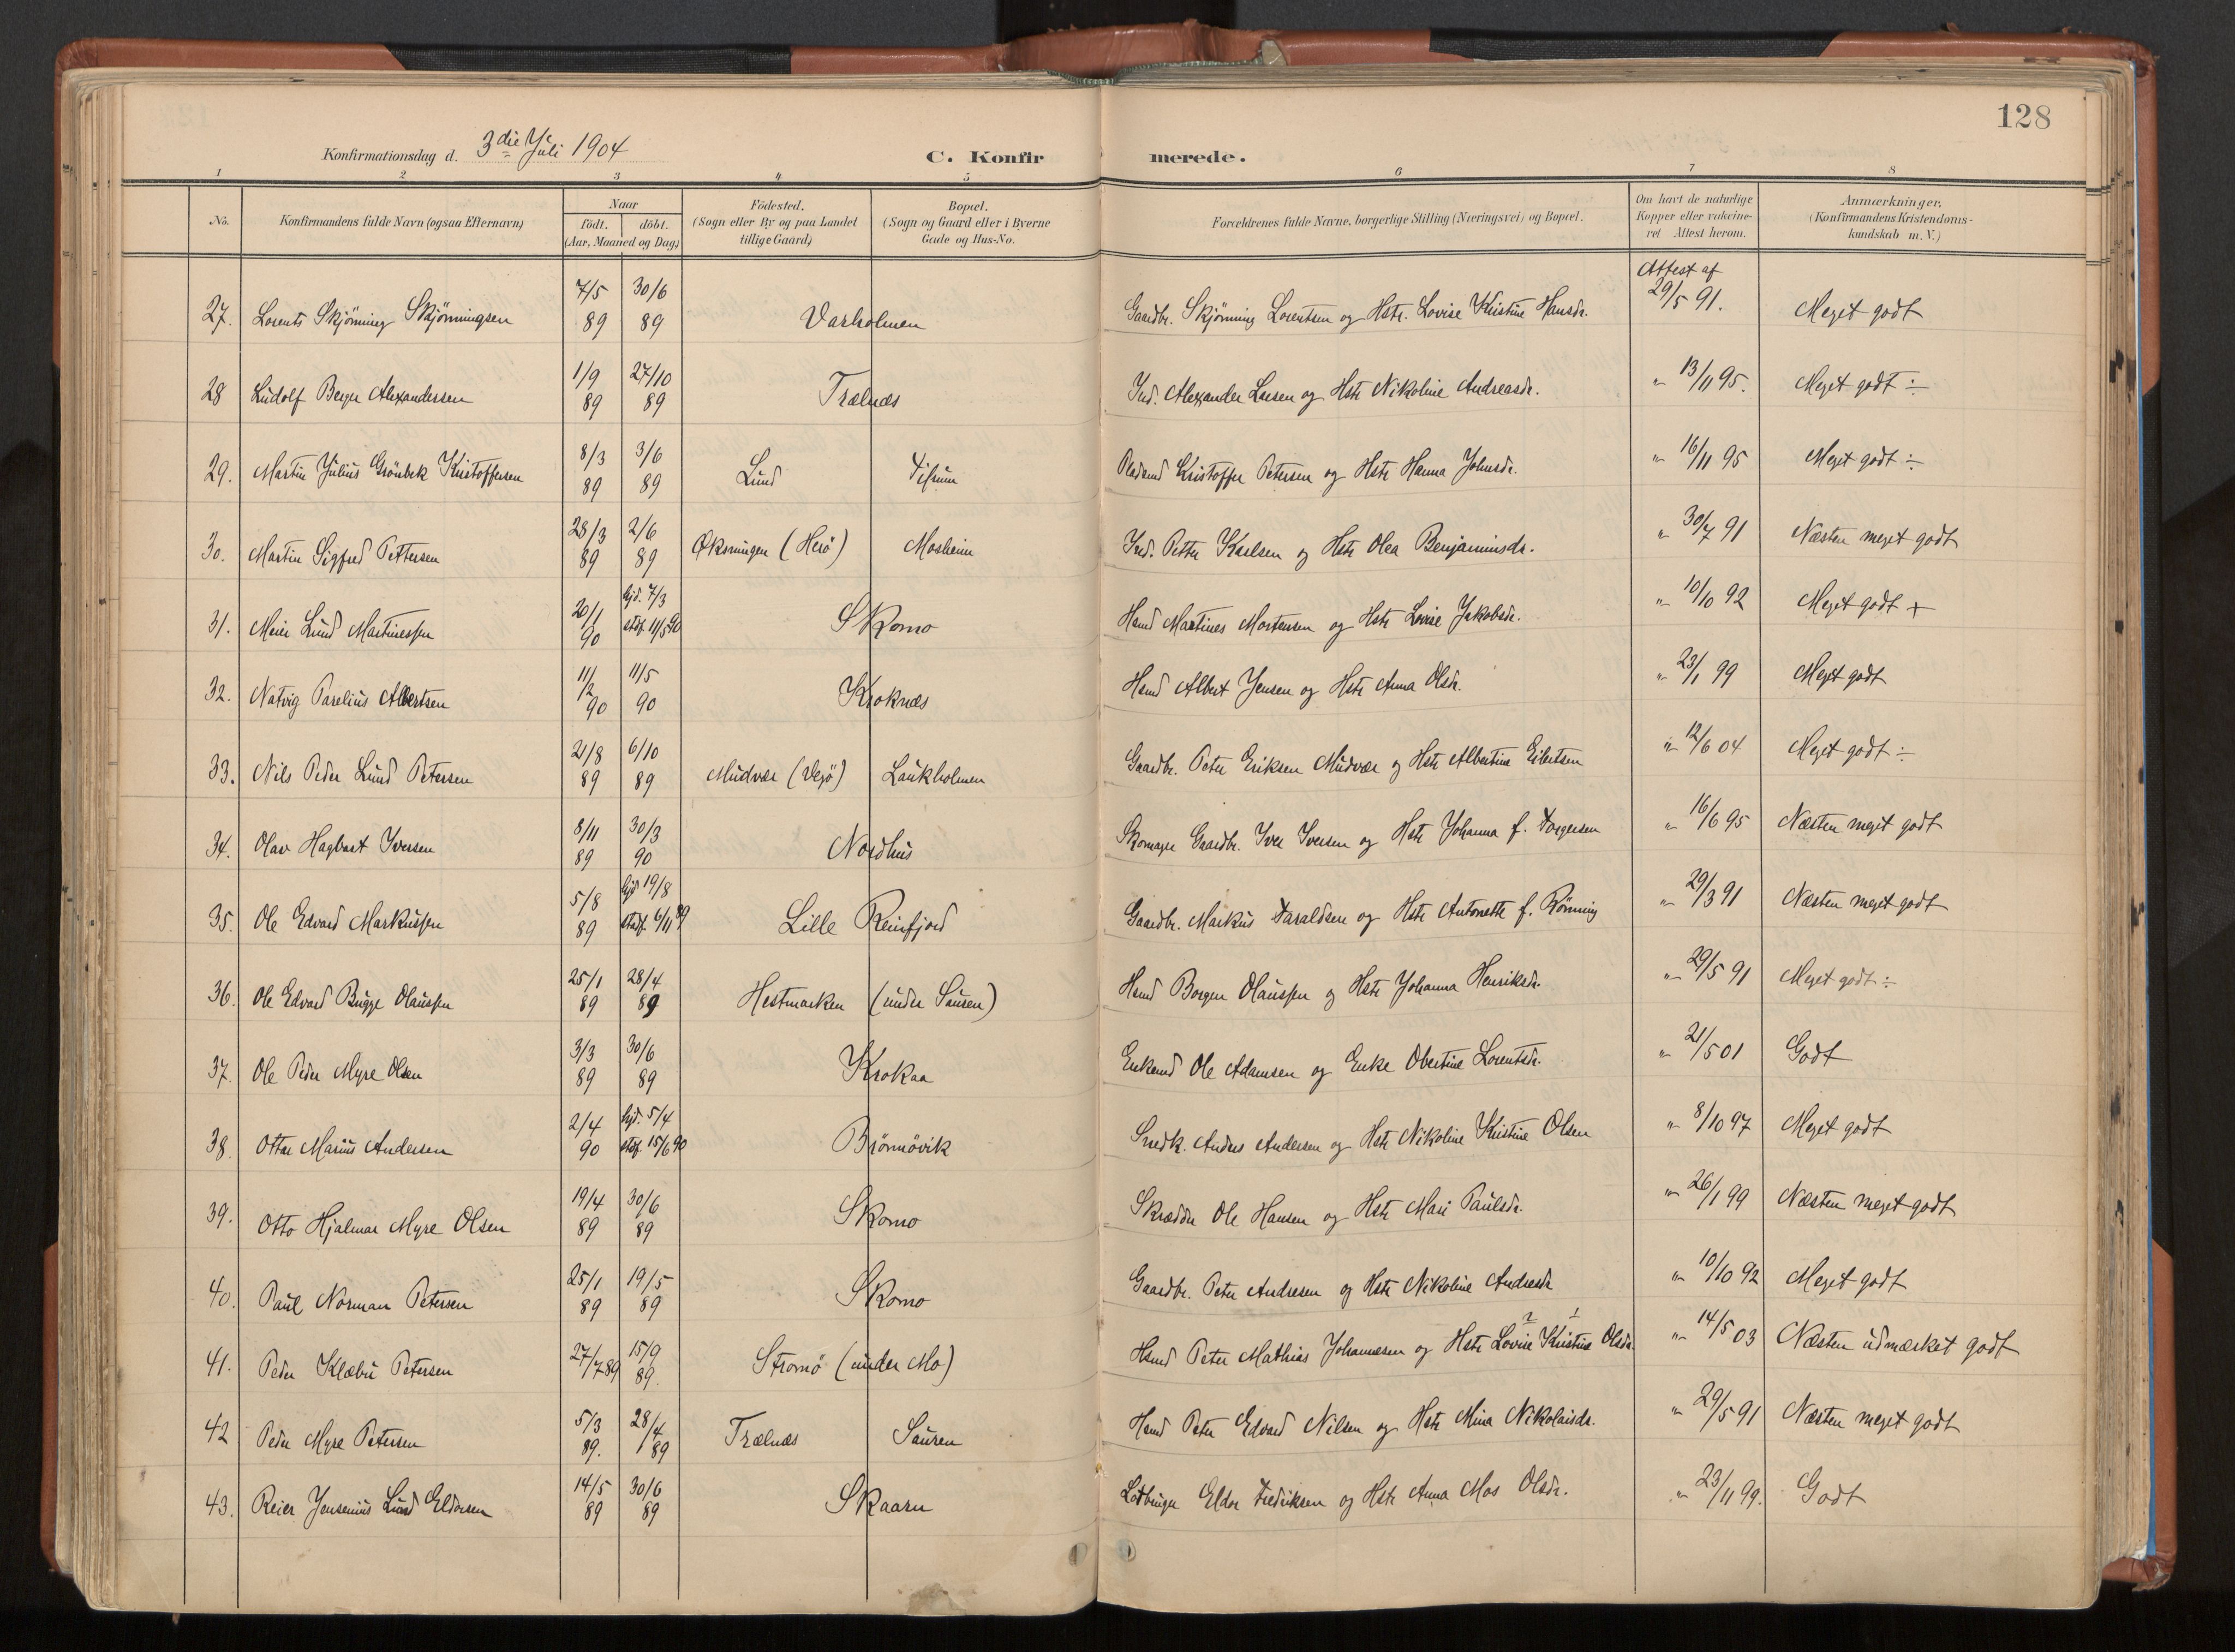 128
Konfirmationsdag d. 3die Juli 1904
C. Konfirmerede.
1 2 3 4 5 6 7 8
No. Konfirmandens fulde Navn (ogsaa Efternavn) Naar födt. döbt. (Aar, Maaned og Dag) Födested. (Sogn eller By og paa Landet tillige Gaard) Bopæl. (Sogn og Gaard eller i Byerne Gade og Hus-No. Forældrenes fulde Navne, borgerlige Stilling (Næringsvei) og Bopæl. Om havt de naturlige Kopper eller vakcineret Attest herom. Anmærkninger. (Konfirmandens Kristendomskundskab m. V.)
27. Lorents Skjönning Skjönningsen 7/5 89 30/6 89 Varholmen Gaardbr. Skjönning Lorentsen og Hstr. Lovise Kristine Hansdr. Attest af 29/5 91. Meget godt
28 Ludolf Berger Alexandersen 1/9 89 27/10 89 Trælnæs Ind. Alexander Larsen og Hstr Nikoline Andreasdr. " 13/11 95. Meget godt ÷
29. Martin Julius Grönbek Kristoffersen 8/3 89 3/6 89 Lund Kristoffer Petersen og Hstr Hanna Johnsdr. " 16/11 95 Meget godt ÷
30. Martin Sigfred Pettersen 28/3 89 2/6 89 Öksningen (Herö) Mosheim Ind. Petter Karlsen og Hstr Olea Benjaminsdr. " 30/7 91 Næsten meget godt
31. Meier Lund Martinessen 20/1 90 hjd. 7/3 stdf. 11/5 90 Skomo Hsmd Martines Mortensen og Hstr Lovise Jakobsdr. " 10/10 92 Meget godt +
32. Natvig Parelius Albertsen 11/2 90 11/5 90 Kroknæs Hsmd Albert Jensen og Hstr Anna Olsdr. " 23/1 99 Meget godt
33. Nils Peder Lund Petersen 21/8 89 6/10 89 Mudvær (Vegö) Laukholmen Gaardbr. Peter Eriksen Mudvær og Hstr Albertine Eilertsen " 12/6 04 Meget godt ÷
34. Olav Hagbart Iversen 8/11 89 30/3 90 Nordhus Skomager Gaardbr. Iver Iversen og Hstr Johanna f. Torgersen " 16/6 95 Næsten meget godt
35. Ole Edvard Markussen 5/8 89 hjd 19/8 stdf. 6/11 89 Lille Reinfjord Gaardbr. Markus Taraldsen og Hstr Antonette f. Rönning " 29/3 91 Næsten meget godt
36. Ole Edvard Bugge Olaussen 25/1 89 28/4 89 Hestmarken (under Sausen) Hsmd Borger Olaussen og Hstr Johanna Henriksdr. " 29/5 91 Meget godt ÷
37. Ole Peder Myre Olsen 3/3 89 30/6 89 Krokaa Enkemd Ole Adamsen og Enke Obertine Lorentsdr. " 21/5 01 Godt
38. Ottar Marius Andersen 2/4 90 hjd. 5/4 stdf. 15/6 90 Brönnövik Snedk. Anders Andersen og Hstr Nikoline Kristine Olsen " 8/10 97 Meget godt
39. Otto Hjalmar Myre Olsen 19/4 89 30/6 89 Skomo Skrædder Ole Hansen og Hstr Mari Paulsdr. " 26/1 99 Næsten meget godt
40. Paul Norman Petersen 25/1 89 19/5 89 Skomo Gaardbr. Peter Andresen og Hstr Nikoline Andresdr " 10/10 92 Meget godt
41. Peder Klæbu Petersen 27/7 89 15/9 89. Strømö (under Mo) Hsmd Peter Mathias Johannesen og Hstr Lovise 2 Kristine 1 Olsdr. " 14/5 03 Næsten udmærket godt
42 Peder Myre Petersen 5/3 89. 28/4 89 Trælnæs Sausen Hsmd Peter Edvard Nilsen og Hstr Mina Nikolaisdr. " 29/5 91 Næsten meget godt
43. Reier Jensenius Lund Eldorsen 14/5 89 30/6 89 Skaarn Eldor Fredriksen og Hstr Anna Mos Olsdr. " 23/11 99. Godt